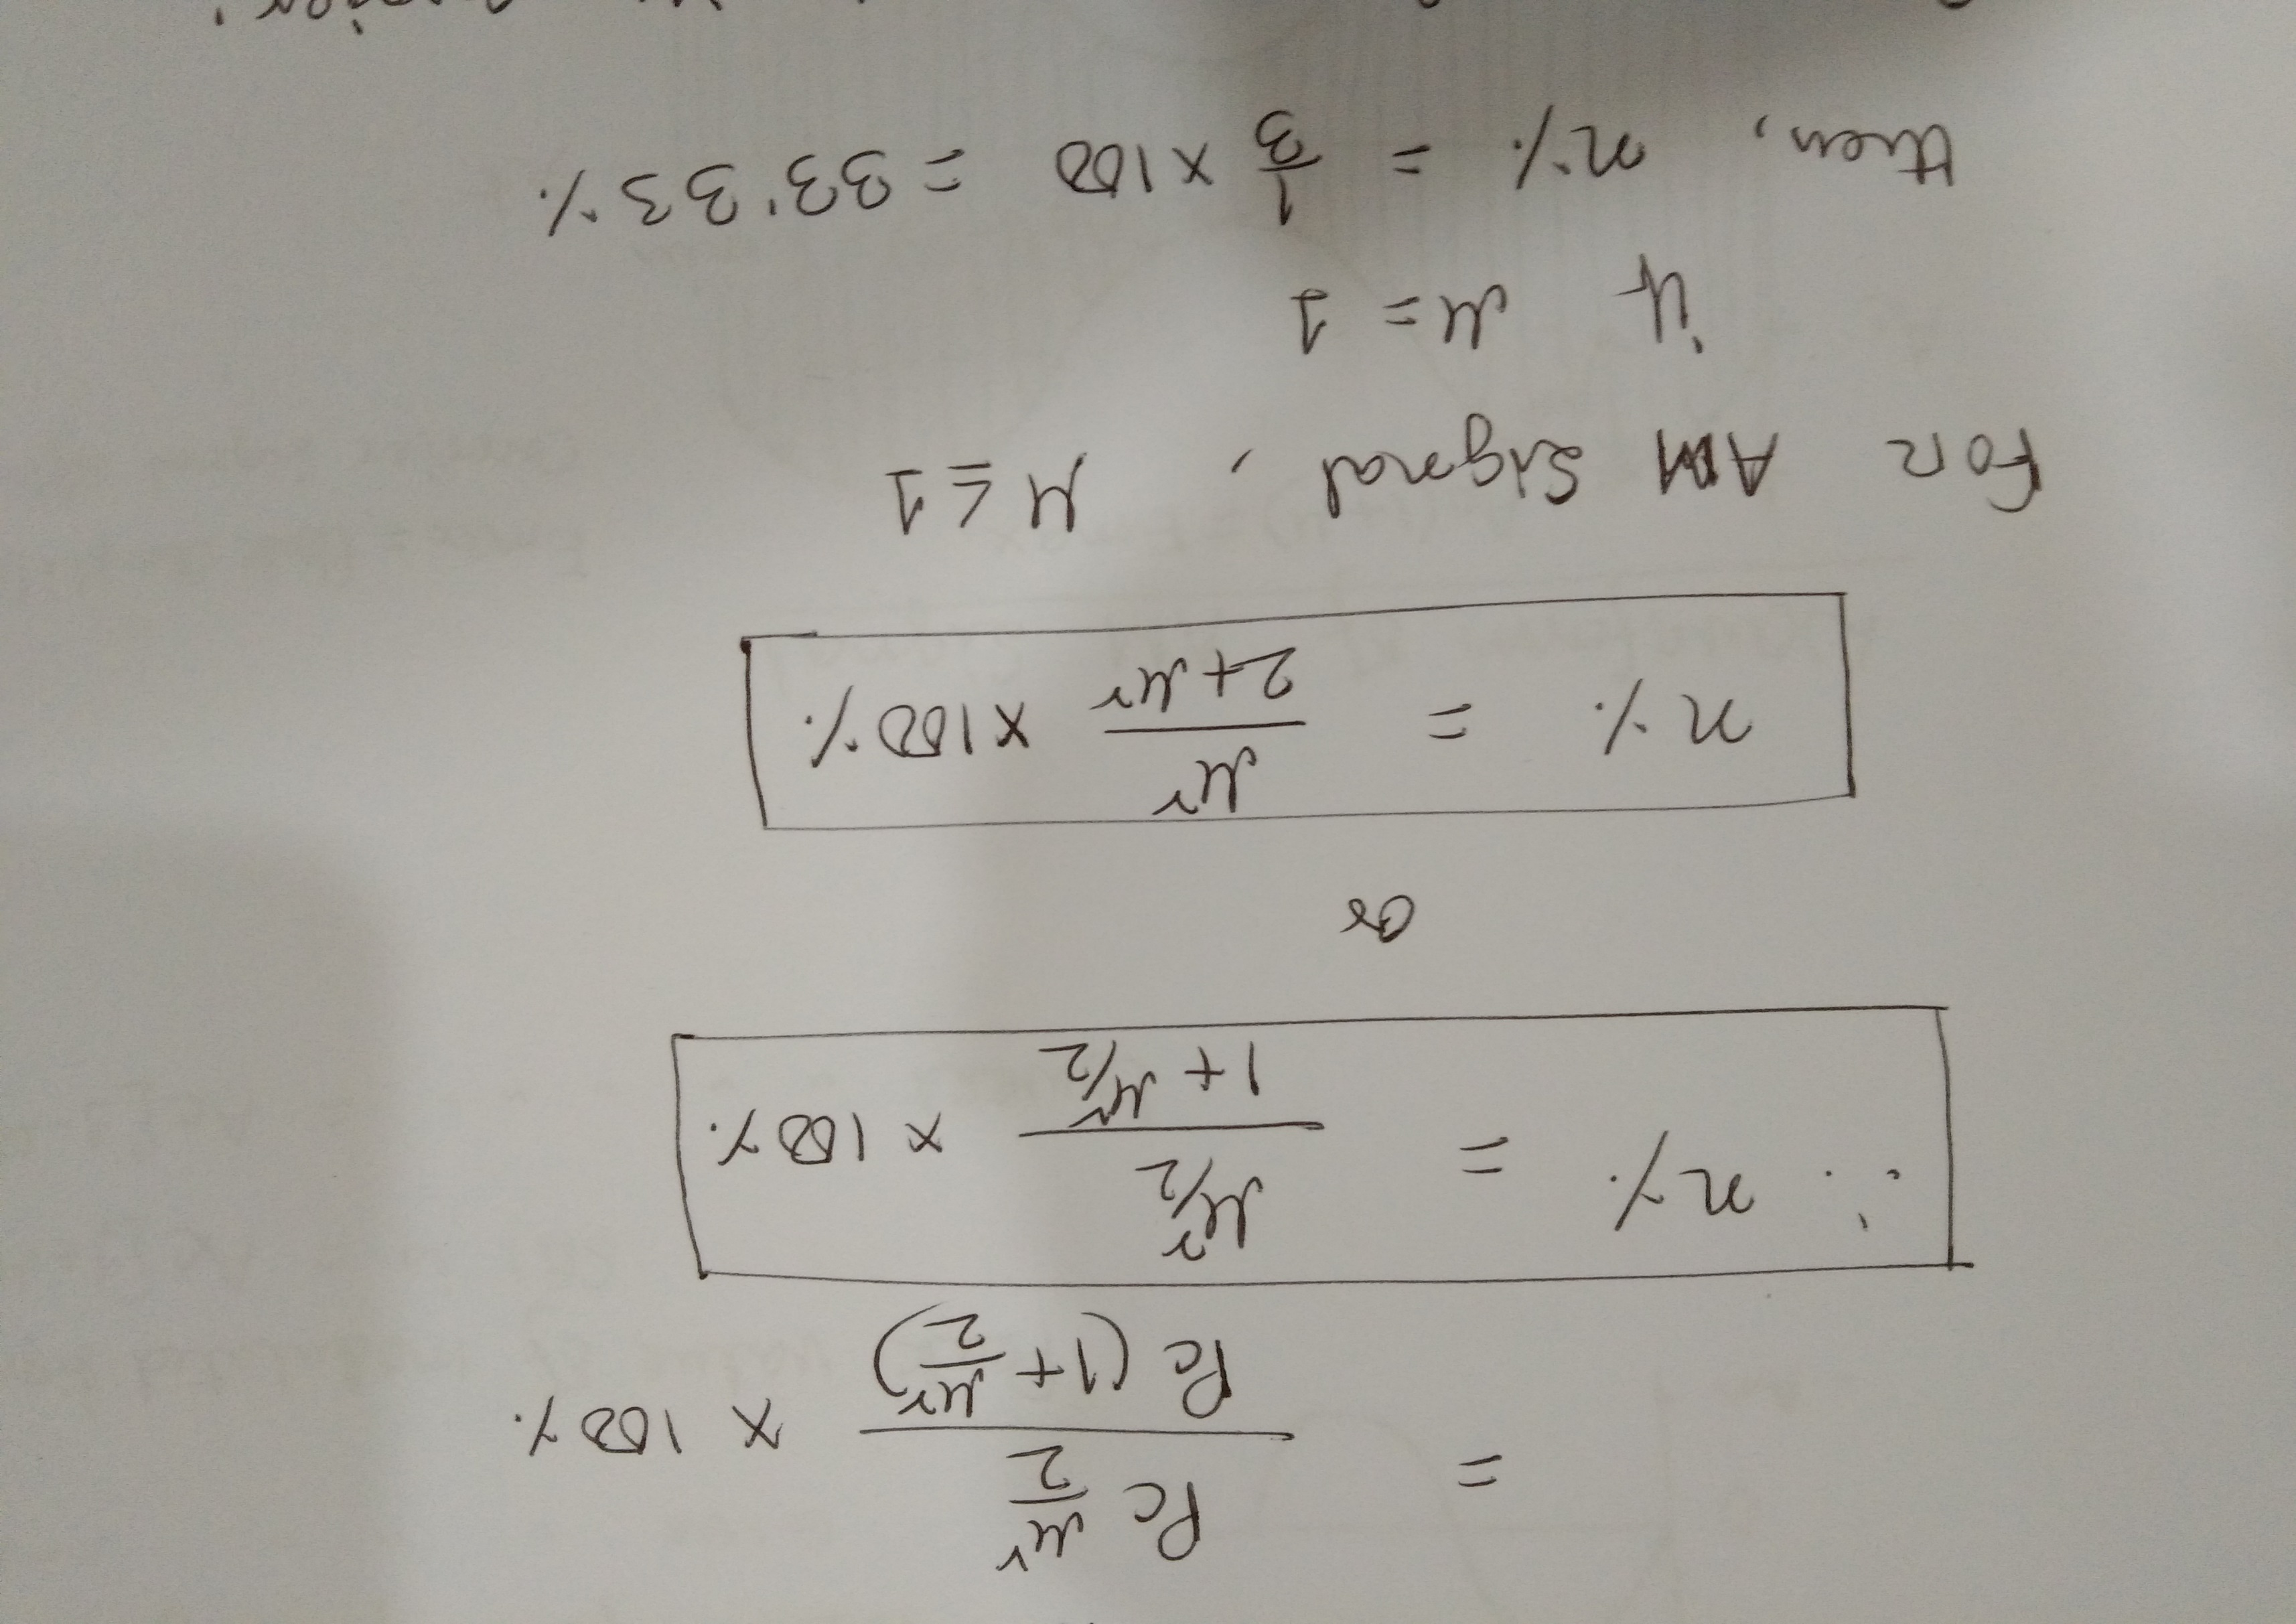 = Pc μ²/2 / Pc (1 + μ²/2) × 100%
∴ η% = μ²/2 / 1 + μ²/2 × 100%
or
η% = μ² / 2 + μ² × 100%
For AM signal, μ ≤ 1
if μ = 1
then, η% = 1/3 × 100 = 33.33%